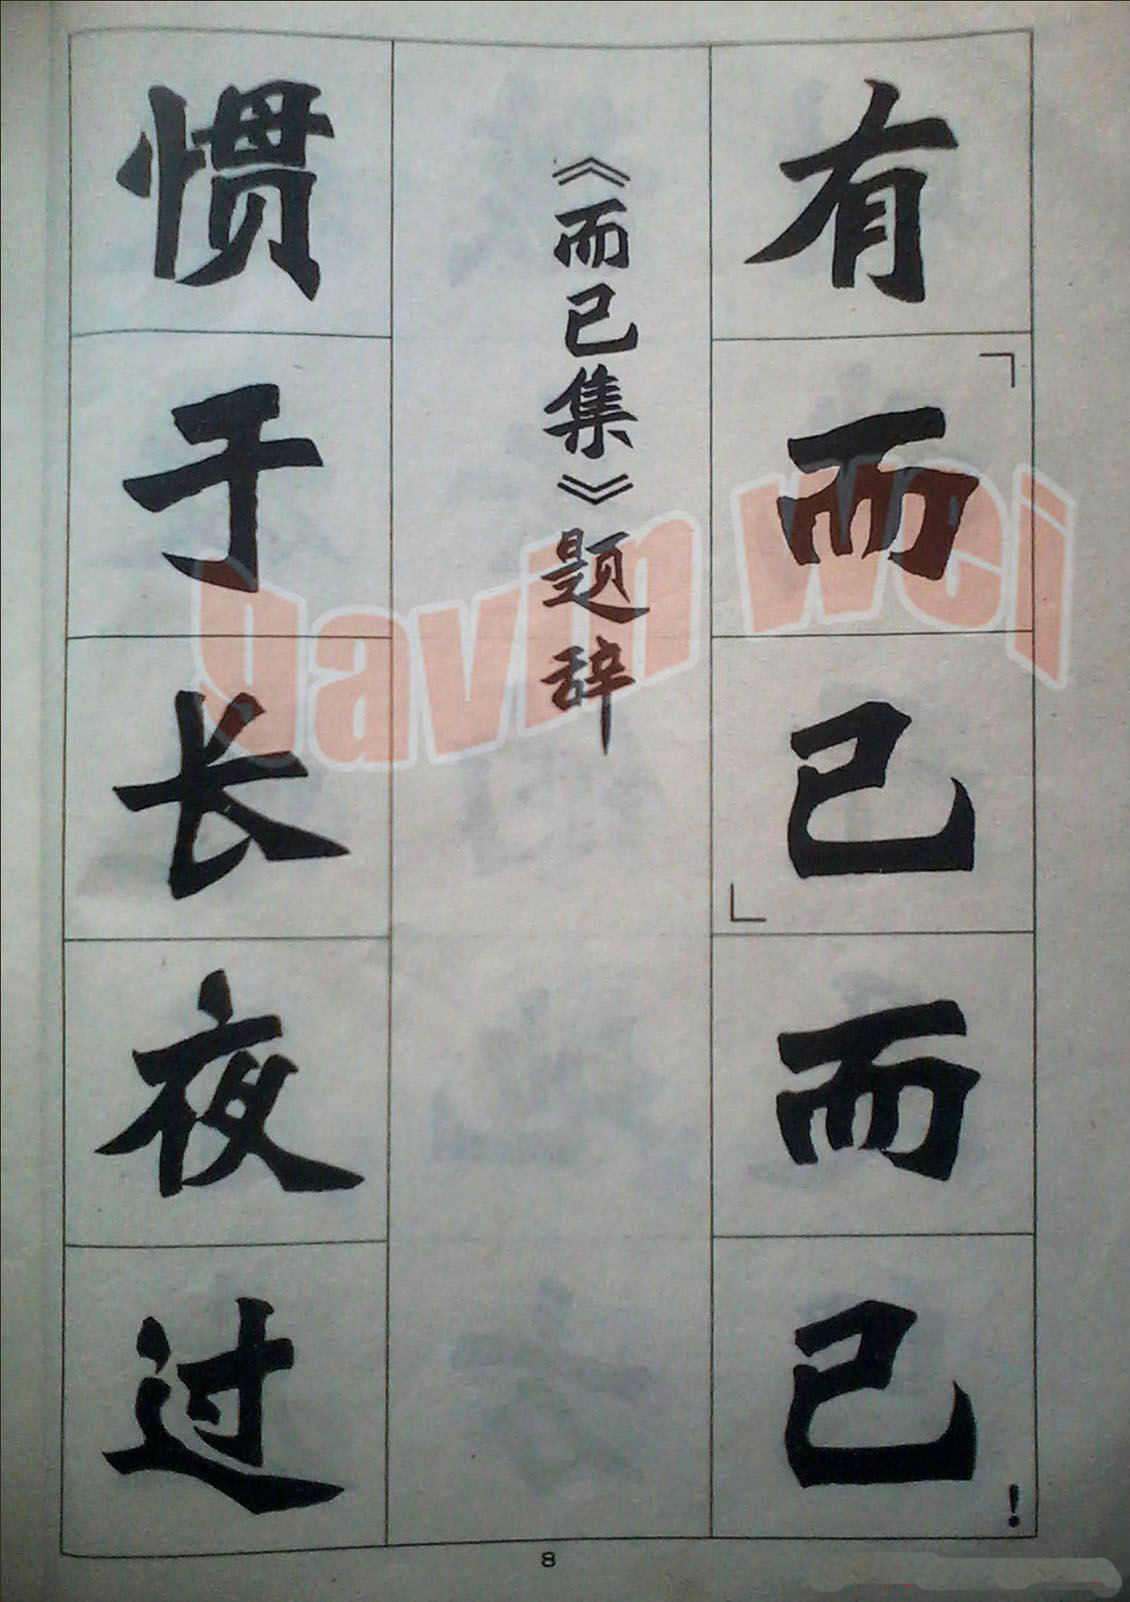 有「而已」而已！
《而已集》题辞
惯于长夜过
gavin wei
8